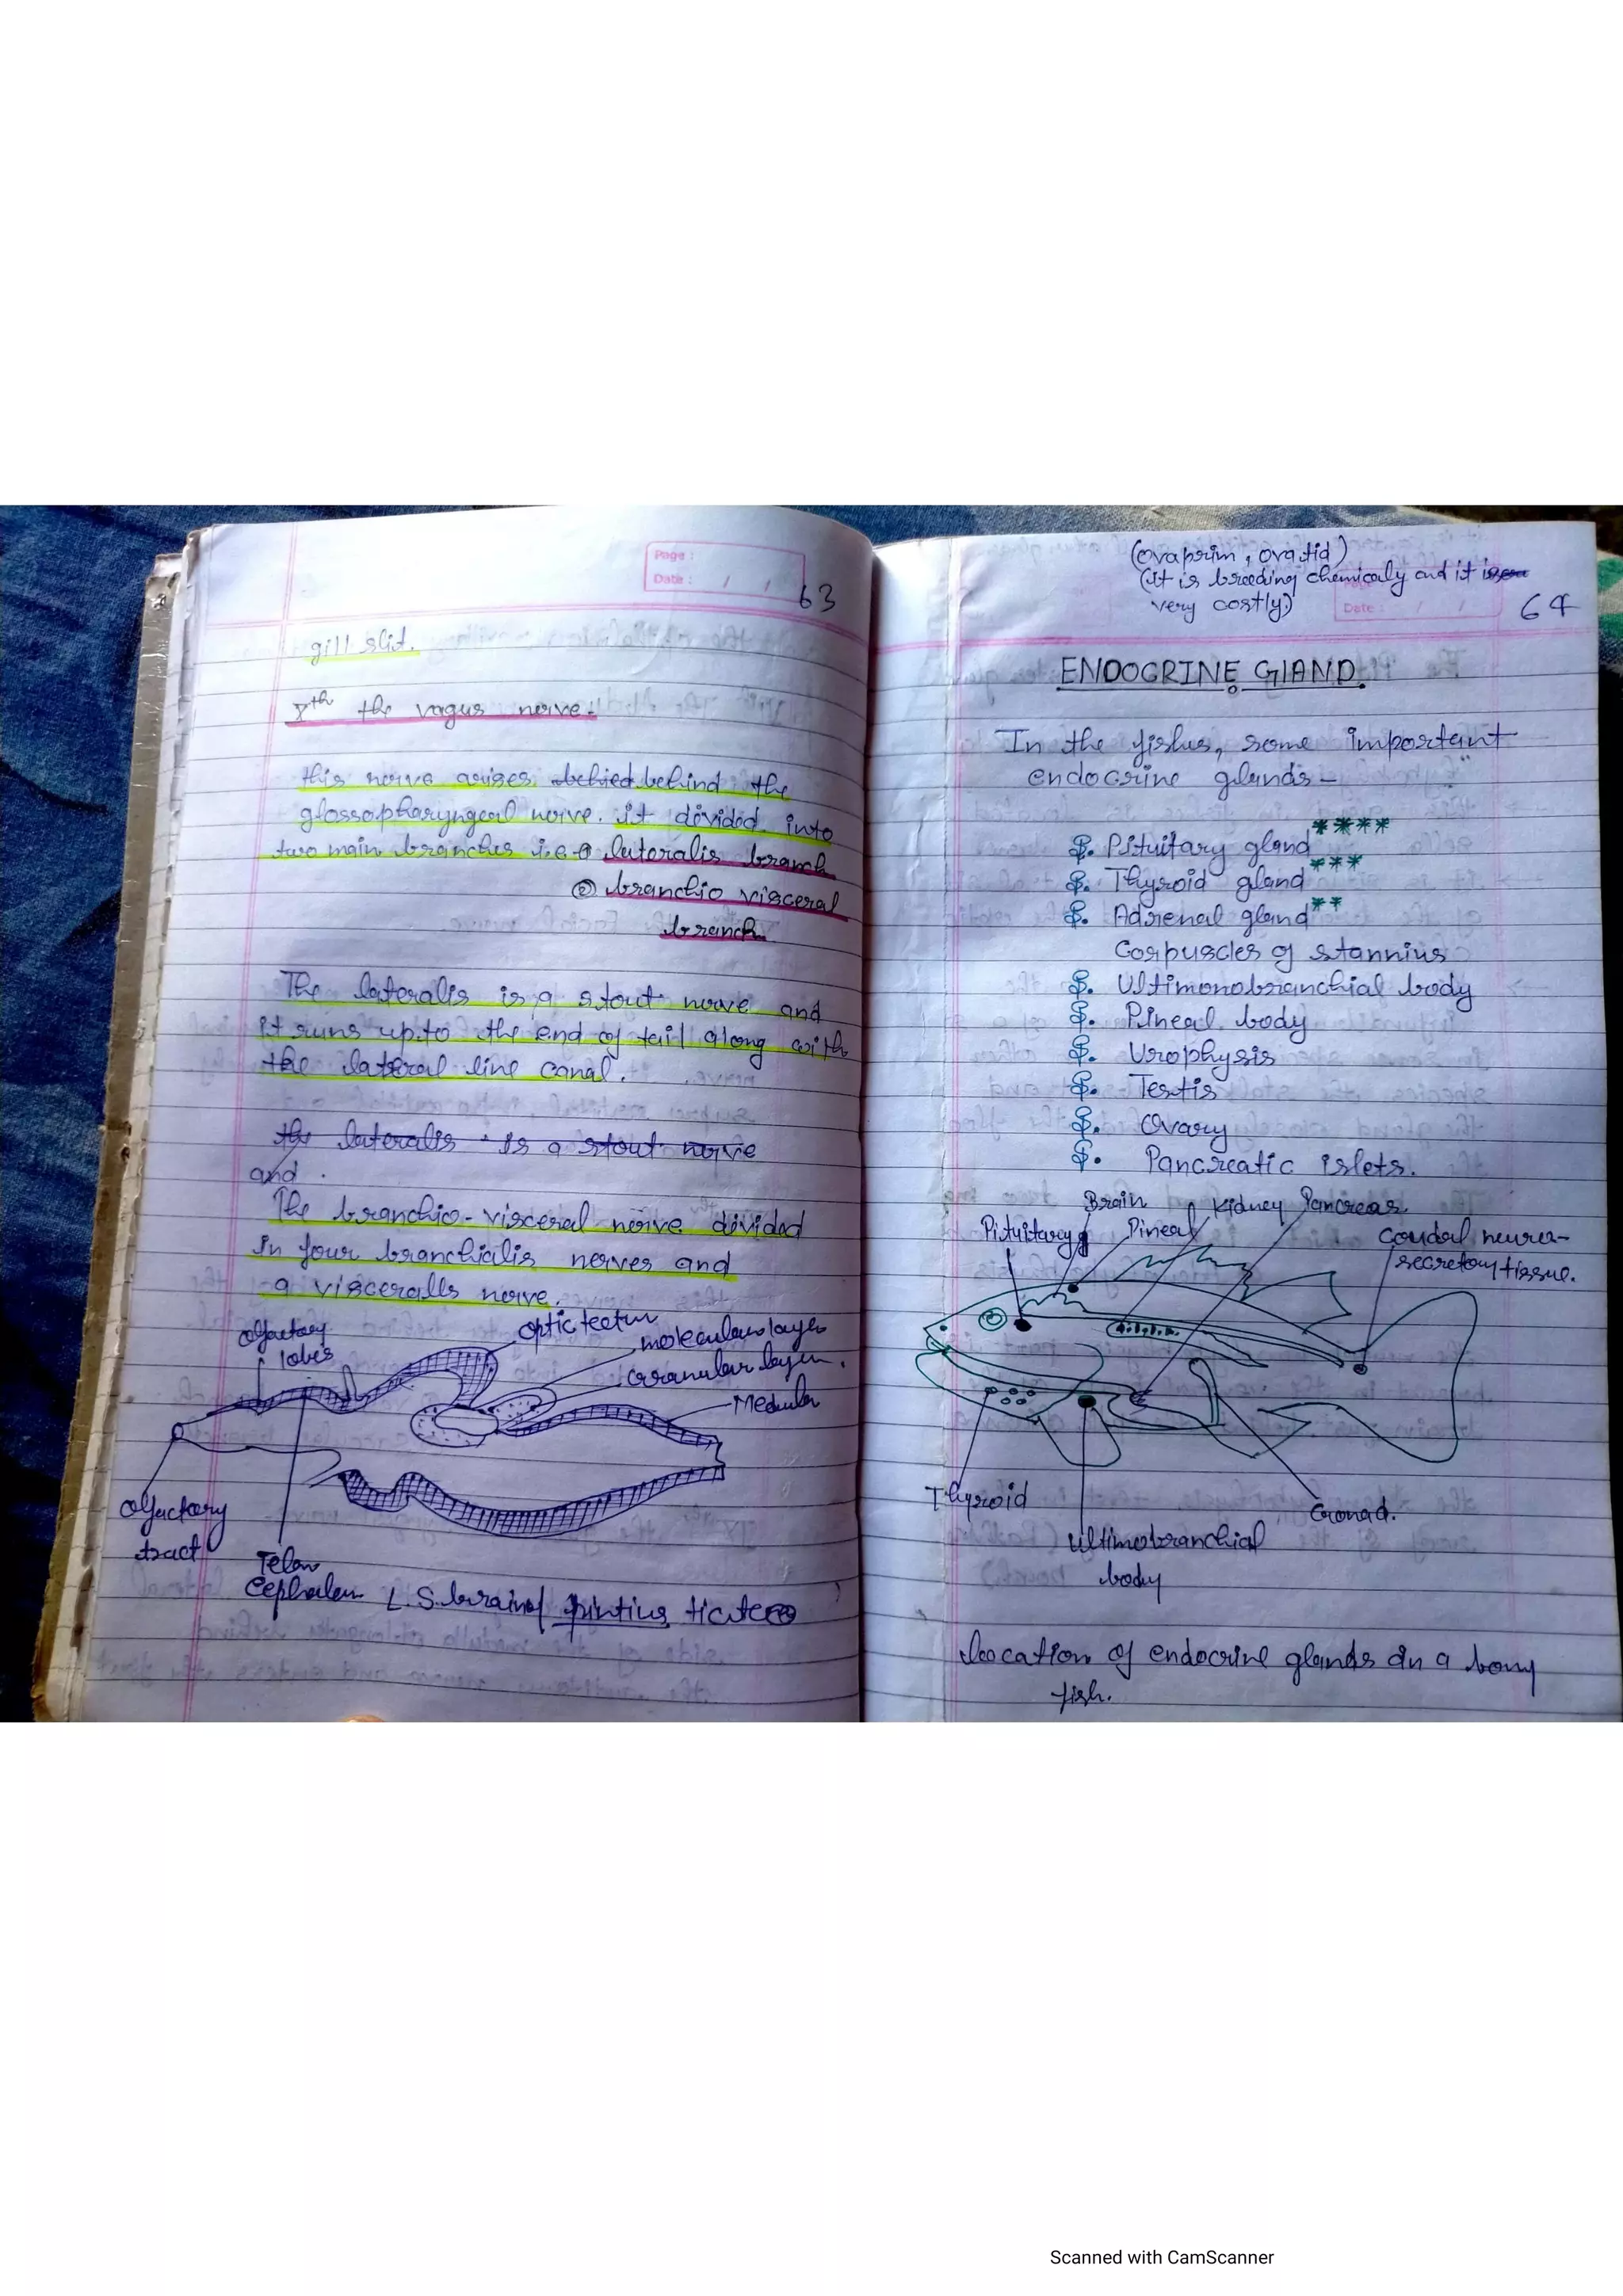 Page :
Date : / /
63
gill slit.
Xth the vagus nerve -
this nerve arises behied behind the
glossopharyngeal nerve. it divided into
two main branches i.e. ① lateralis branch
② branchio visceral
branch
The lateralis is a stout nerve and
it runs up to the end of tail along with
the lateral line canal.
the lateralis is a stout nerve
and .
The branchio-visceral nerve divided
in four branchialis nerves and
a visceralls nerve.
olfactory
lobes
optic tectum
molecular layer
Granular layer.
Medulla
olfactory
tract
Telen
cephalen
L.S. brain of
(ovaprim, ova tid)
(it is breeding chemicaly and it is
very costly)
Date : / /
64
ENDOCRINE GLAND.
In the fishes, some important
endocrine glands -
Pituitary gland ****
Thyroid gland ***
Adrenal gland **
Corpuscles of stannius
Ultimonobranchial body
Pineal body
Urophysis
Testis
Ovary
Pancreatic islets.
Brain
Kidney
Pancreas.
Pituitary
Pineal
Caudal neuro-
secretory tissue.
Thyroid
Gonad.
Ultimobranchial
body
Location of endocrine glands in a bony
fish.
Scanned with CamScanner